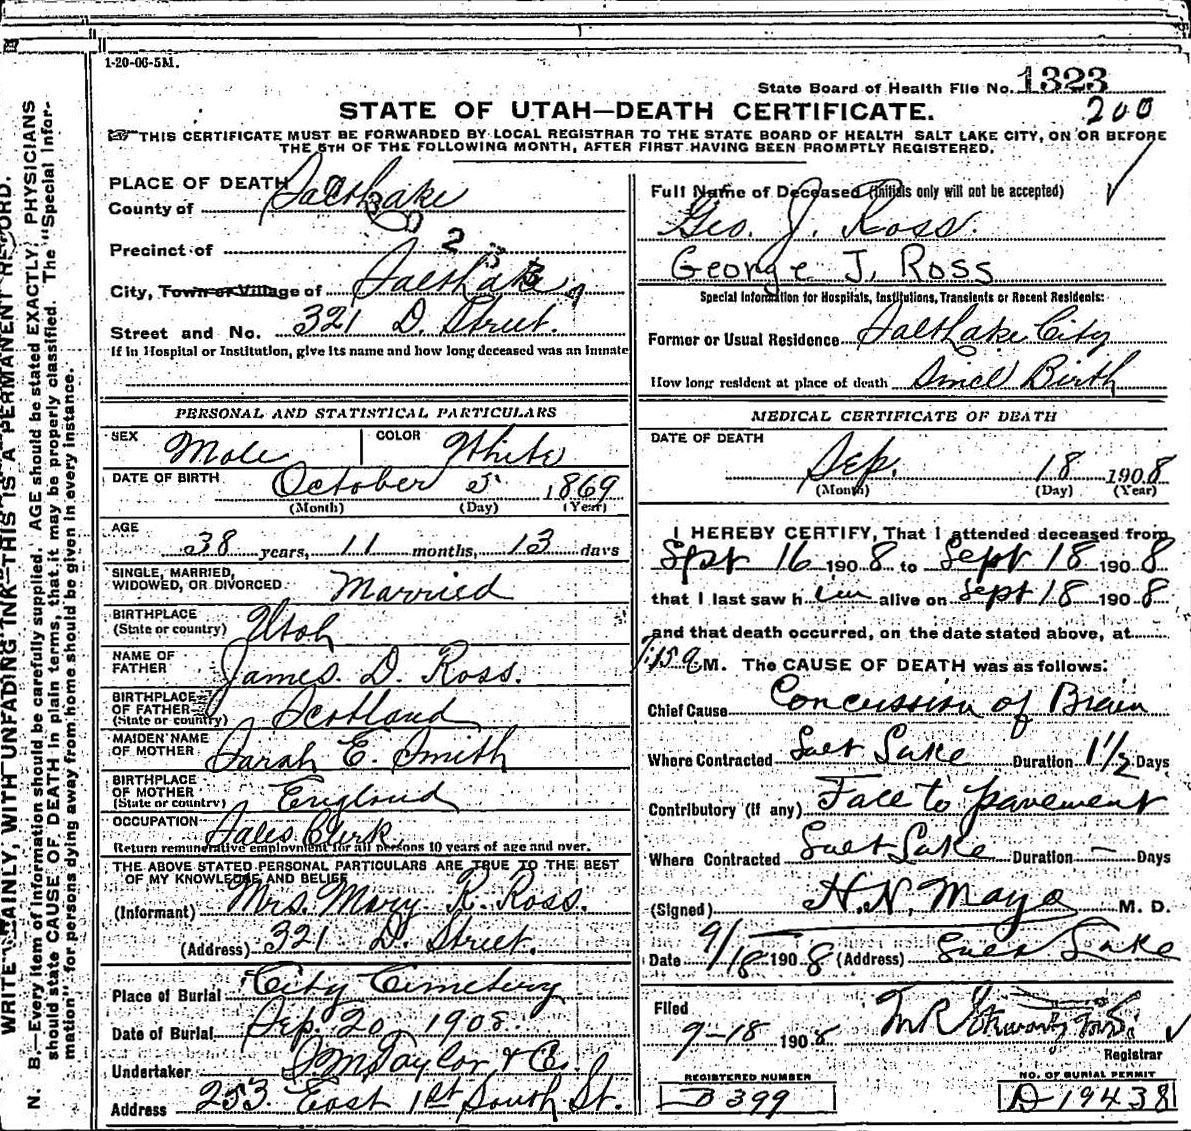 1-20-06-5M.
State Board of Health File No. 1323
200
STATE OF UTAH—DEATH CERTIFICATE.
THIS CERTIFICATE MUST BE FORWARDED BY LOCAL REGISTRAR TO THE STATE BOARD OF HEALTH SALT LAKE CITY, ON OR BEFORE
THE 5TH OF THE FOLLOWING MONTH, AFTER FIRST HAVING BEEN PROMPTLY REGISTERED.
WRITE PLAINLY, WITH UNFADING INK—THIS IS A PERMANENT RECORD.
N. B.—Every item of information should be carefully supplied. AGE should be stated EXACTLY. PHYSICIANS
should state CAUSE OF DEATH in plain terms, that it may be properly classified. The "Special Infor-
mation" for persons dying away from home should be given in every instance.
PLACE OF DEATH
County of Salt Lake
Precinct of 2
City, Town or Village of Salt Lake
Street and No. 321 D. Street.
If in Hospital or Institution, give its name and how long deceased was an inmate
PERSONAL AND STATISTICAL PARTICULARS
SEX Male COLOR White
DATE OF BIRTH October 5 1869
(Month) (Day) (Year)
AGE
38 years, 11 months, 13 days
SINGLE, MARRIED,
WIDOWED, OR DIVORCED Married
BIRTHPLACE
(State or country) Utah
NAME OF
FATHER James. D. Ross.
BIRTHPLACE
OF FATHER
(State or country) Scotland
MAIDEN NAME
OF MOTHER Sarah E. Smith
BIRTHPLACE
OF MOTHER
(State or country) England
OCCUPATION Sales Clerk
Return remunerative employment for all persons 10 years of age and over.
THE ABOVE STATED PERSONAL PARTICULARS ARE TRUE TO THE BEST
OF MY KNOWLEDGE AND BELIEF
(Informant) Mrs. Mary. R. Ross.
(Address) 321 D. Street.
Place of Burial City Cemetery
Date of Burial Sep. 20, 1908.
Undertaker S. M Taylor & Co.
Address 253. East 1st South St.
Full Name of Deceased (Initials only will not be accepted)
Geo. J. Ross.
George J. Ross
Special Information for Hospitals, Institutions, Transients or Recent Residents:
Former or Usual Residence Salt Lake City
How long resident at place of death Since Birth
MEDICAL CERTIFICATE OF DEATH
DATE OF DEATH
Sep. 18 1908
(Month) (Day) (Year)
I HEREBY CERTIFY, That I attended deceased from
Sept 16 1908 to Sept 18 1908
that I last saw h im alive on Sept 18 1908
and that death occurred, on the date stated above, at
M. The CAUSE OF DEATH was as follows:
Chief Cause Concussion of Brain
Where Contracted Salt Lake Duration 1 1/2 Days
Contributory (if any) Fall to pavement
Where Contracted Salt Lake Duration — Days
(Signed) H. N. Mayo M. D.
Date 9/18 1908 (Address) Salt Lake
Filed
9-18 1908
Registrar
REGISTERED NUMBER
B 399
NO. OF BURIAL PERMIT
D-19438